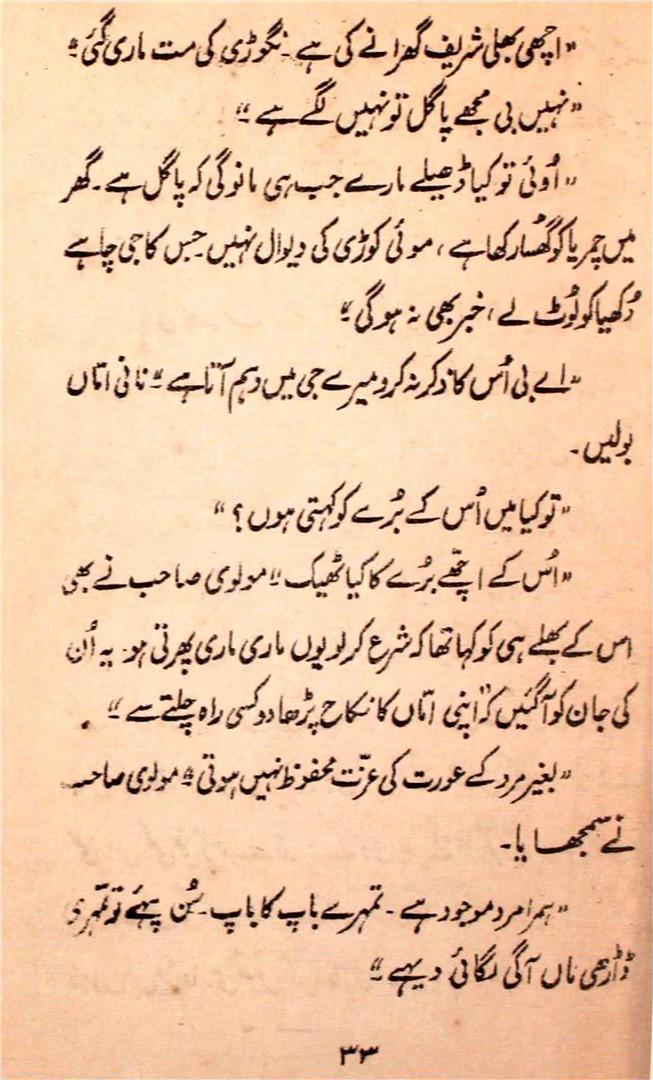 "اچھی بھلی شریف گھرانے کی ہے۔ نگوڑی کی مت ماری گئی"
"نہیں بی مجھے پاگل تو نہیں لگے ہے"
"اُوئی تو کیا ڈھیلے مارے جب ہی مانوگی کہ پاگل ہے۔ گھر
میں چمریا کو گھُسا رکھا ہے، موئی کوڑی کی دیوال نہیں۔ جس کا جی چاہے
دُکھیا کو لُوٹ لے، خبر بھی نہ ہوگی"
"اے بی اُس کا ذکر نہ کرو میرے جی میں وہم آتا ہے" نانی اماّں
بولیں۔
"تو کیا میں اُس کے بُرے کو کہتی ہوں؟"
"اُس کے اچھّے بُرے کا کیا ٹھیک" مولوی صاحب نے بھی
اس کے بھلے ہی کو کہا تھا کہ شرع کرلو یوں ماری ماری پھرتی ہو۔ یہ اُن
کی جان کو آگئیں کہ "اپنی اماّں کا نکاح پڑھا دو کسی راہ چلتے سے"
"بغیر مرد کے عورت کی عزّت محفوظ نہیں ہوتی" مولوی صاحب
نے سمجھایا۔
"ہمرا مرد موجود ہے۔ تمہرے باپ کا باپ۔ سُن پہئے تو تمہری
ڈاڑھی ماں آگی لگائی دیہے"
۳۳